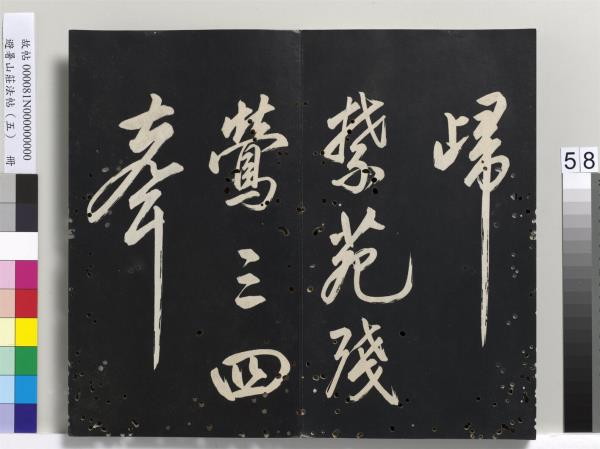 歸
禁苑殘
鶯三四
聲
故帖 000081N000000000
避暑山莊法帖（五） 冊
58